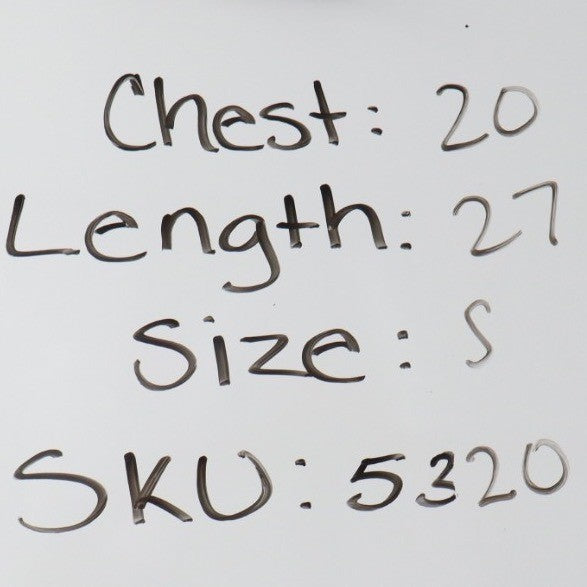 Chest: 20
Length: 27
Size: S
SKU: 5320